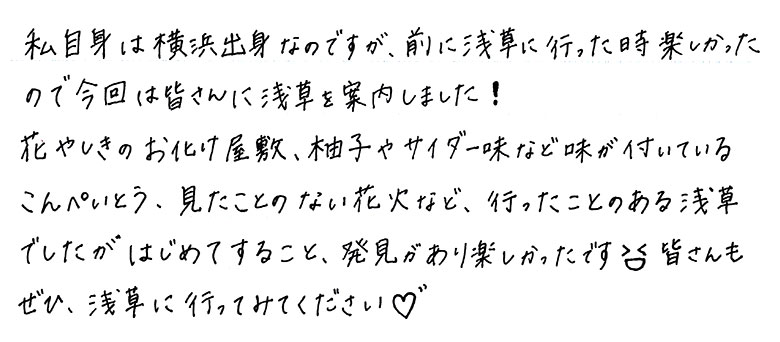 私自身は横浜出身なのですが、前に浅草に行った時楽しかった
ので今回は皆さんに浅草を案内しました！
花やしきのお化け屋敷、柚子やサイダー味など味が付いている
こんぺいとう、見たことのない花火など、行ったことのある浅草
でしたがはじめてすること、発見があり楽しかったです 皆さんも
ぜひ、浅草に行ってみてください♡